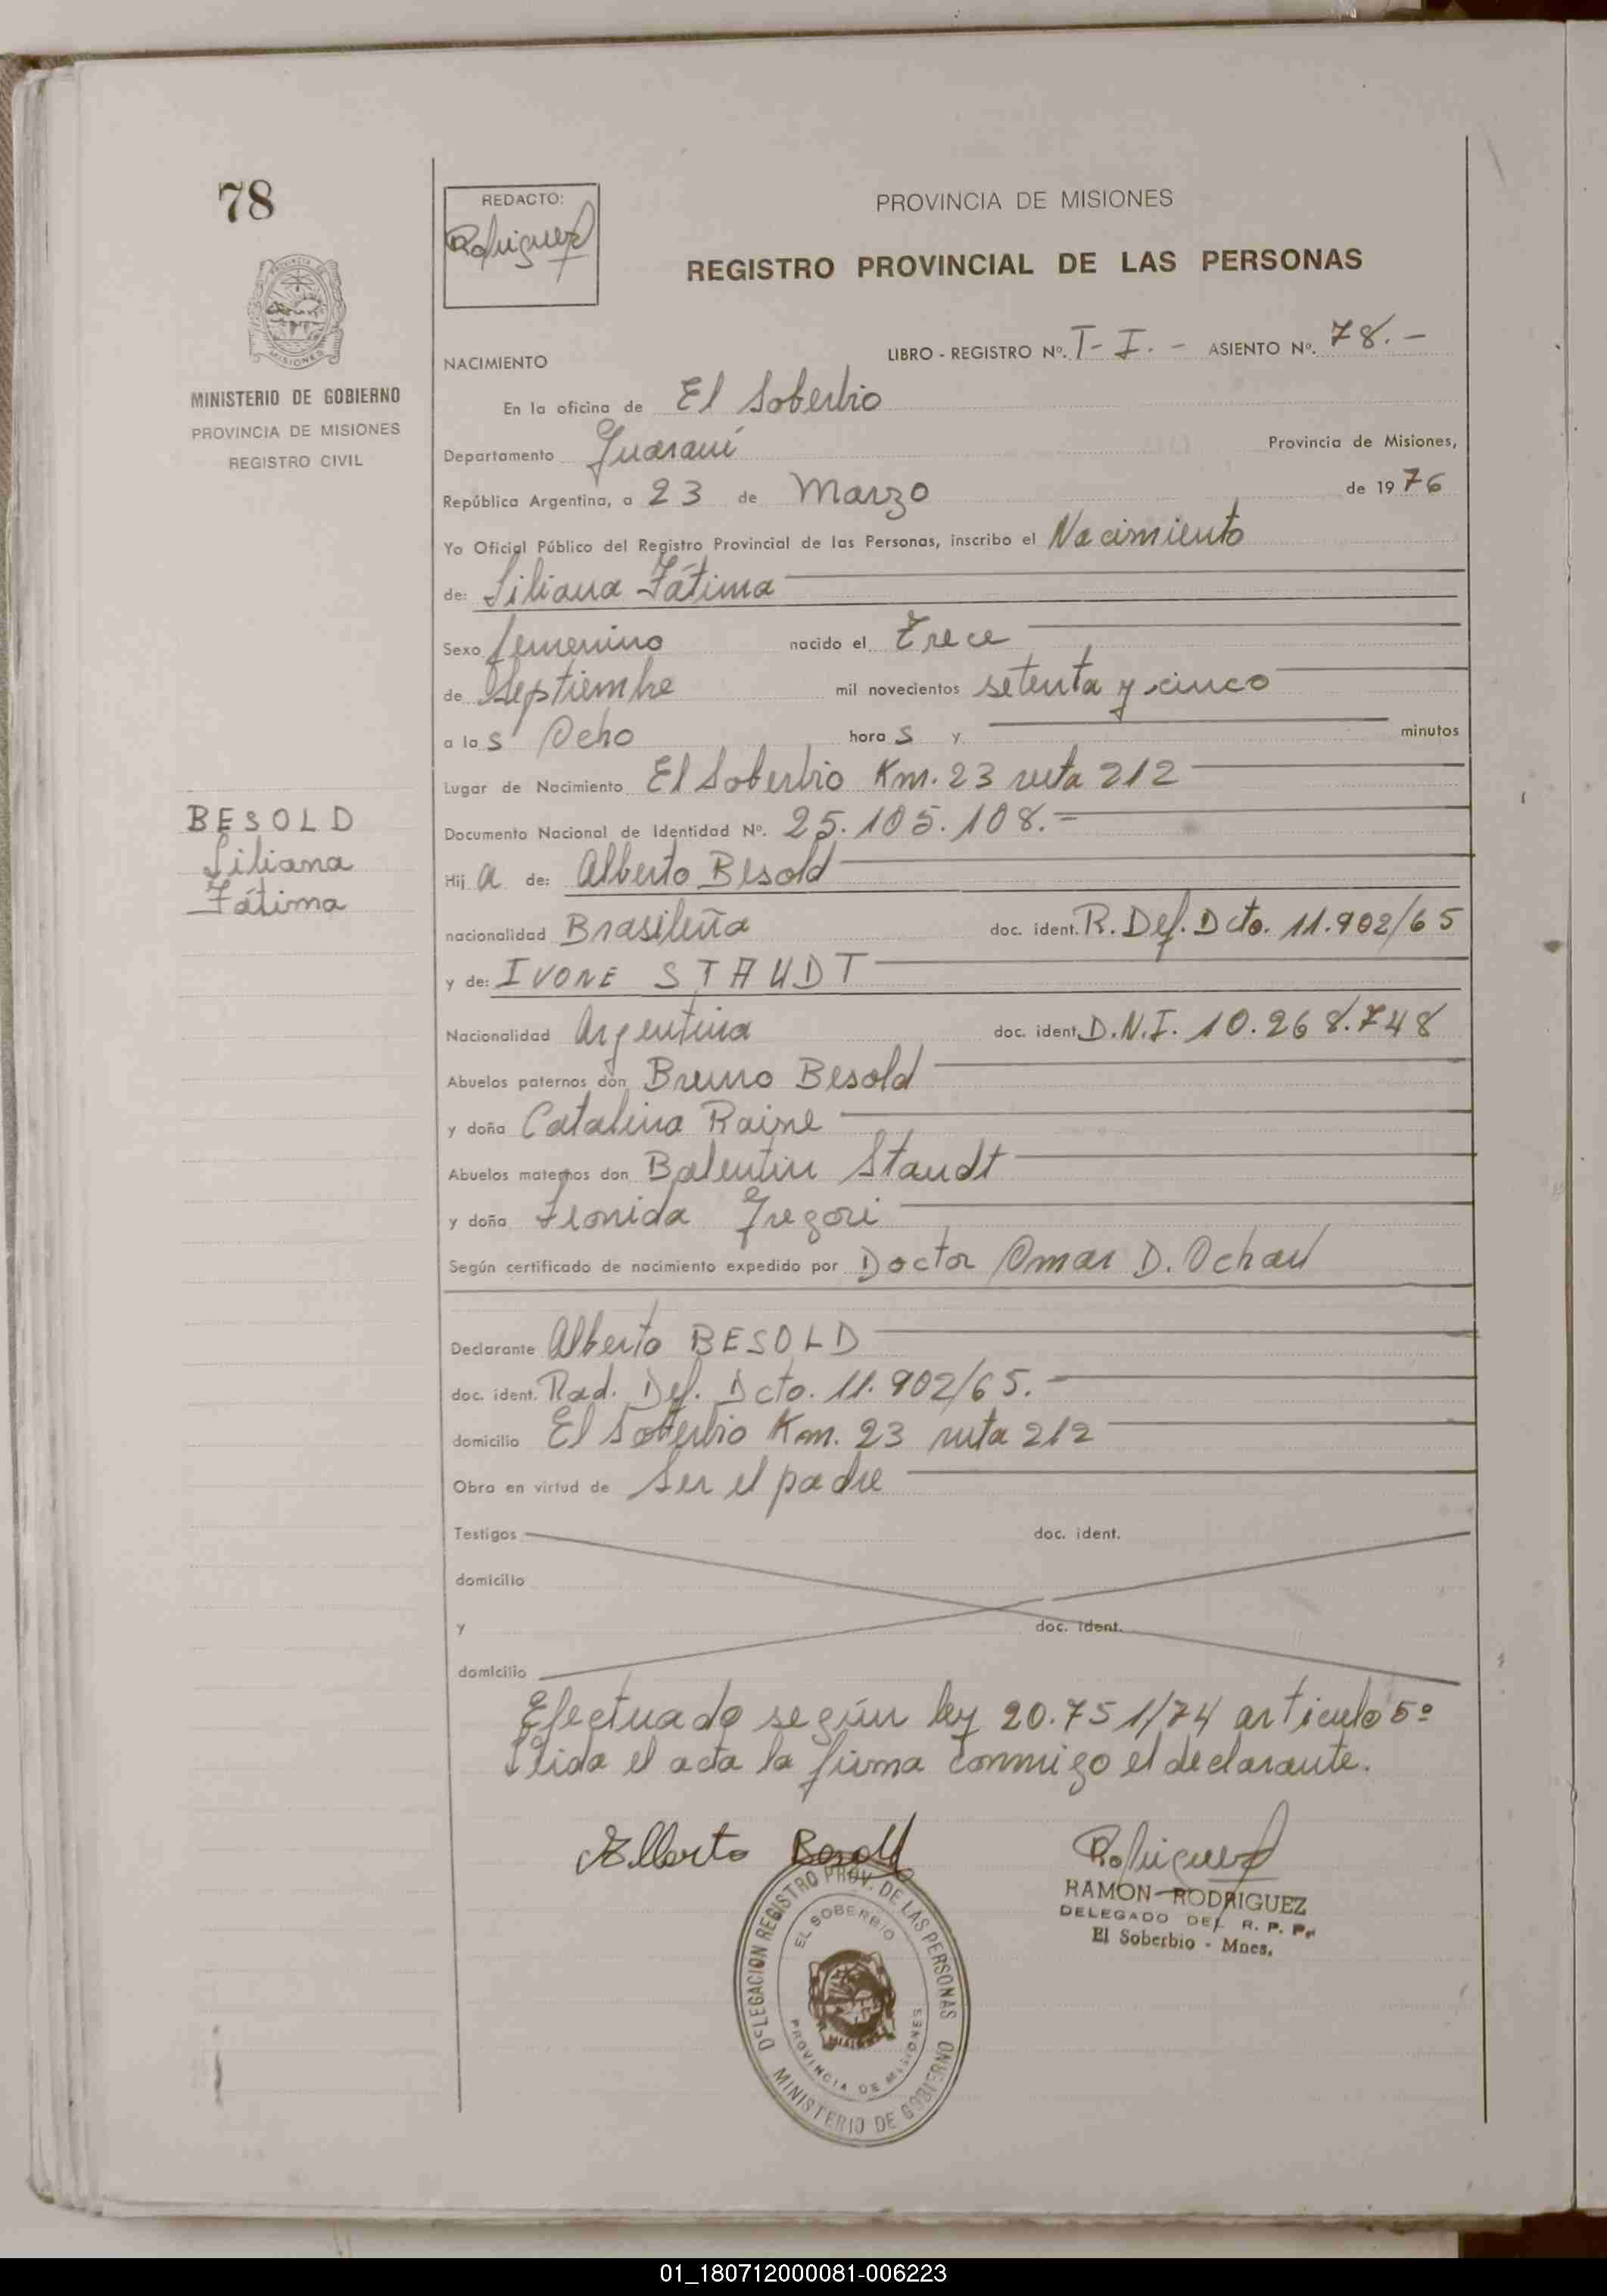 78
REDACTO:
Rodriguez
PROVINCIA DE MISIONES
REGISTRO PROVINCIAL DE LAS PERSONAS
MISIONES
MINISTERIO DE GOBIERNO
PROVINCIA DE MISIONES
REGISTRO CIVIL
NACIMIENTO
LIBRO - REGISTRO Nº. T - I. - ASIENTO Nº. 78. -
En la oficina de El Soberbio
Departamento Guaraní Provincia de Misiones,
República Argentina, a 23 de Marzo de 1976
Yo Oficial Público del Registro Provincial de las Personas, inscribo el Nacimiento
de: Liliana Fátima
Sexo femenino nacido el trece
de Septiembre mil novecientos setenta y cinco
a las Ocho horas y minutos
Lugar de Nacimiento El Soberbio Km. 23 ruta 212
Documento Nacional de Identidad Nº. 25.105.108.-
BESOLD
Liliana
Fátima
Hija de: Alberto Besold
nacionalidad Brasileña doc. ident. R. Def. Dcto. 11.902/65
y de: IVONE STAUDT
Nacionalidad Argentina doc. ident. D.N.I. 10.268.748
Abuelos paternos don Bruno Besold
y doña Catalina Raine
Abuelos maternos don Balentin Staudt
y doña Flonida Gregori
Según certificado de nacimiento expedido por Doctor Omar D.
Declarante Alberto BESOLD
doc. ident. Rad. Def. Dcto. 11.902/65.
domicilio El Soberbio Km. 23 ruta 212
Obra en virtud de Ser el padre
Testigos doc. ident.
domicilio
y doc. ident.
domicilio
Efectuado según ley 20.751/74 articulo 5º
Leida el acta la firma conmigo el declarante.
Alberto Besold
Rodriguez
RAMON RODRIGUEZ
DELEGADO DEL R. P. P.
El Soberbio - Mnes.
DELEGACION REGISTRO PROV. DE LAS PERSONAS
EL SOBERBIO
PROVINCIA DE MISIONES
MINISTERIO DE GOBIERNO
01_180712000081-006223